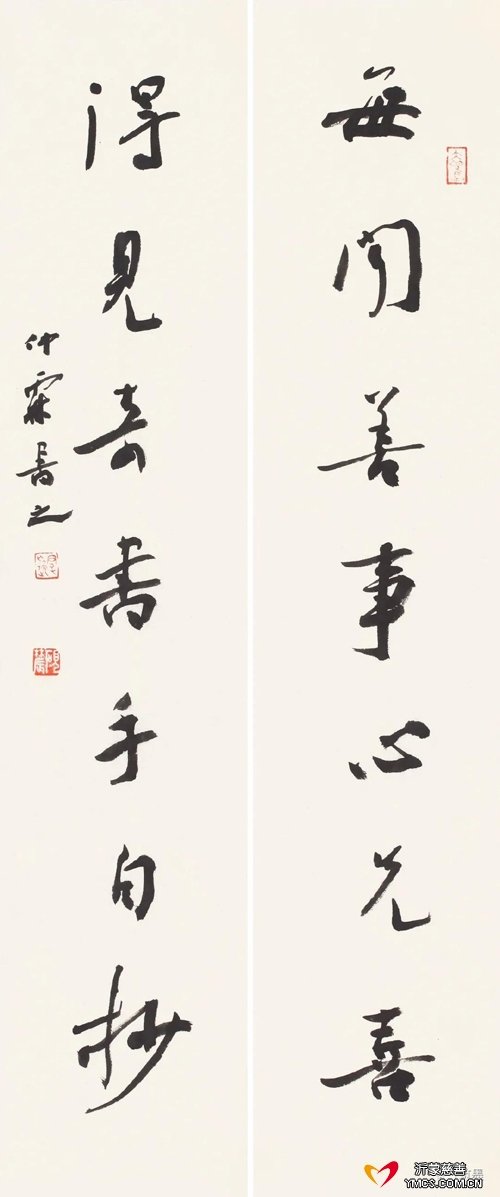 每聞善事心先喜
得見奇書手自抄
仲霖書之
沂蒙慈善
YMCS.COM.CN